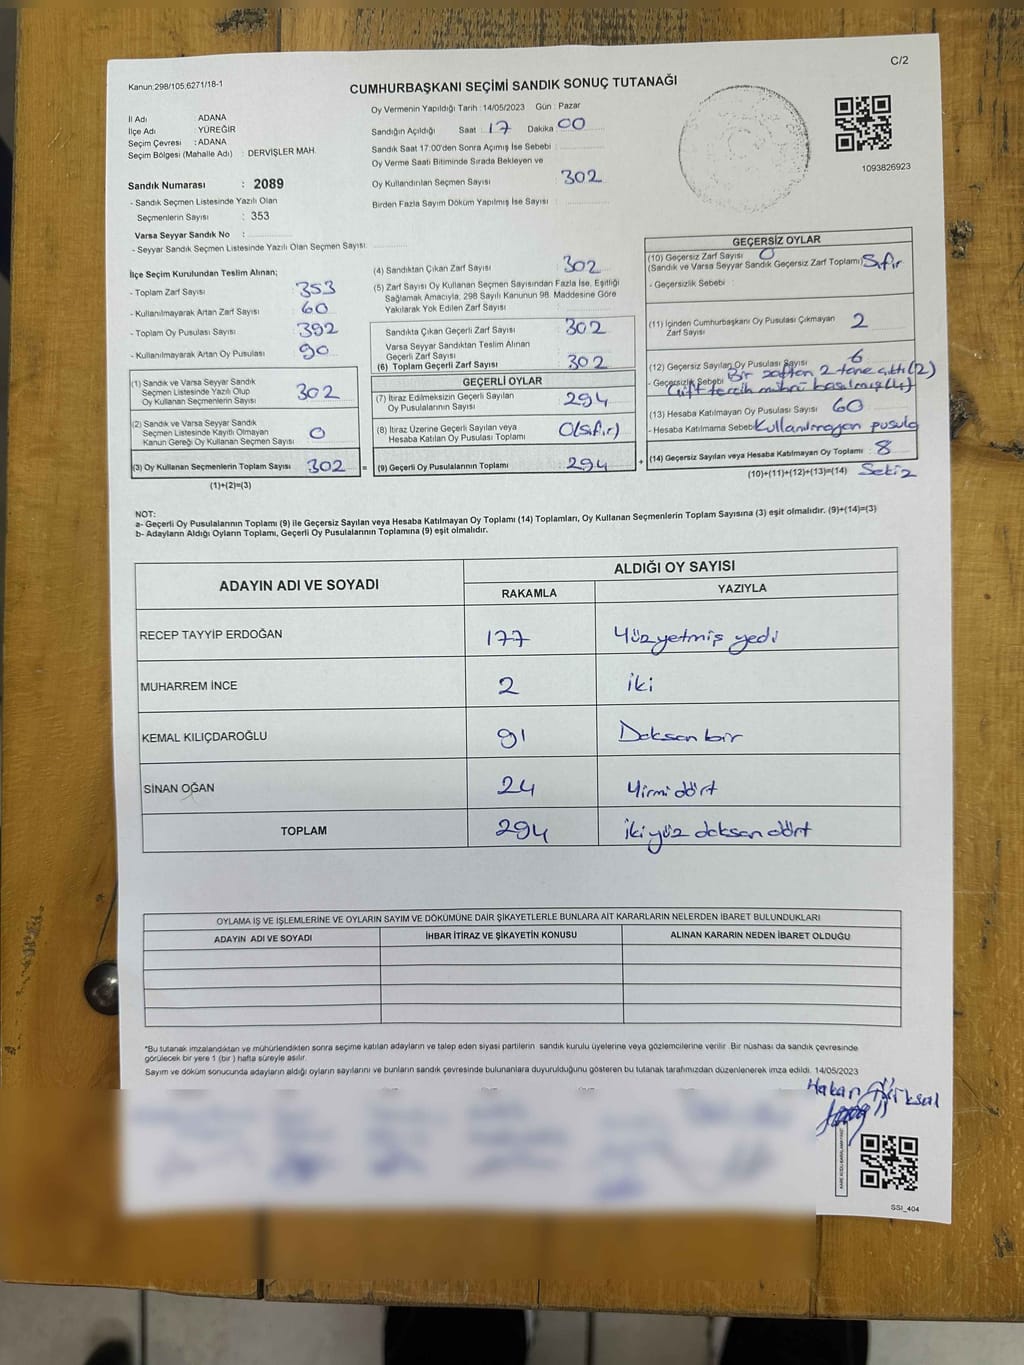 C/2
Kanun:298/105;6271/18-1
CUMHURBAŞKANI SEÇİMİ SANDIK SONUÇ TUTANAĞI
1093826923
İl Adı : ADANA
İlçe Adı : YÜREĞİR
Seçim Çevresi : ADANA
Seçim Bölgesi (Mahalle Adı) : DERVİŞLER MAH.
Sandık Numarası : 2089
- Sandık Seçmen Listesinde Yazılı Olan
Seçmenlerin Sayısı : 353
Varsa Seyyar Sandık No :
- Seyyar Sandık Seçmen Listesinde Yazılı Olan Seçmen Sayısı:
Oy Vermenin Yapıldığı Tarih : 14/05/2023 Gün : Pazar
Sandığın Açıldığı Saat : 17 Dakika 00
Sandık Saat 17:00'den Sonra Açımış İse Sebebi :
Oy Verme Saati Bitiminde Sırada Bekleyen ve
Oy Kullandırılan Seçmen Sayısı : 302
Birden Fazla Sayım Döküm Yapılmış İse Sayısı :
İlçe Seçim Kurulundan Teslim Alınan;
- Toplam Zarf Sayısı : 353
- Kullanılmayarak Artan Zarf Sayısı : 60
- Toplam Oy Pusulası Sayısı : 392
- Kullanılmayarak Artan Oy Pusulası : 90
(1) Sandık ve Varsa Seyyar Sandık
Seçmen Listesinde Yazılı Olup
Oy Kullanan Seçmenlerin Sayısı : 302
(2) Sandık ve Varsa Seyyar Sandık
Seçmen Listesinde Kayıtlı Olmayan
Kanun Gereği Oy Kullanan Seçmen Sayısı : 0
(3) Oy Kullanan Seçmenlerin Toplam Sayısı : 302 =
(1)+(2)=(3)
(4) Sandıktan Çıkan Zarf Sayısı : 302
(5) Zarf Sayısı Oy Kullanan Seçmen Sayısından Fazla İse, Eşitliği
Sağlamak Amacıyla, 298 Sayılı Kanunun 98. Maddesine Göre
Yakılarak Yok Edilen Zarf Sayısı :
Sandıkta Çıkan Geçerli Zarf Sayısı : 302
Varsa Seyyar Sandıktan Teslim Alınan
Geçerli Zarf Sayısı :
(6) Toplam Geçerli Zarf Sayısı : 302
GEÇERLİ OYLAR
(7) İtiraz Edilmeksizin Geçerli Sayılan
Oy Pusulalarının Sayısı : 294
(8) İtiraz Üzerine Geçerli Sayılan veya
Hesaba Katılan Oy Pusulası Toplamı : 0(sıfır)
(9) Geçerli Oy Pusulalarının Toplamı : 294 +
GEÇERSİZ OYLAR
(10) Geçersiz Zarf Sayısı : 0
(Sandık ve Varsa Seyyar Sandık Geçersiz Zarf Toplamı) Sıfır
- Geçersizlik Sebebi :
(11) İçinden Cumhurbaşkanı Oy Pusulası Çıkmayan
Zarf Sayısı : 2
(12) Geçersiz Sayılan Oy Pusulası Sayısı : 6
- Geçersizlik Sebebi Bir zaftan 2 tane çıktı(2)
Çift tercih mührü basılmış(4)
(13) Hesaba Katılmayan Oy Pusulası Sayısı : 60
- Hesaba Katılmama Sebebi Kullanılmayan pusula
(14) Geçersiz Sayılan veya Hesaba Katılmayan Oy Toplamı : 8
(10)+(11)+(12)+(13)=(14) Sekiz
NOT:
a- Geçerli Oy Pusulalarının Toplamı (9) ile Geçersiz Sayılan veya Hesaba Katılmayan Oy Toplamı (14) Toplamları, Oy Kullanan Seçmenlerin Toplam Sayısına (3) eşit olmalıdır. (9)+(14)=(3)
b- Adayların Aldığı Oyların Toplamı, Geçerli Oy Pusulalarının Toplamına (9) eşit olmalıdır.
ADAYIN ADI VE SOYADI ALDIĞI OY SAYISI
RAKAMLA YAZIYLA
RECEP TAYYİP ERDOĞAN 177 Yüzyetmiş yedi
MUHARREM İNCE 2 iki
KEMAL KILIÇDAROĞLU 91 Doksan bir
SİNAN OĞAN 24 Yirmi dört
TOPLAM 294 iki yüz doksan dört
OYLAMA İŞ VE İŞLEMLERİNE VE OYLARIN SAYIM VE DÖKÜMÜNE DAİR ŞİKAYETLERLE BUNLARA AİT KARARLARIN NELERDEN İBARET BULUNDUKLARI
ADAYIN ADI VE SOYADI İHBAR İTİRAZ VE ŞİKAYETİN KONUSU ALINAN KARARIN NEDEN İBARET OLDUĞU
*Bu tutanak imzalandıktan ve mühürlendikten sonra seçime katılan adayların ve talep eden siyasi partilerin sandık kurulu üyelerine veya gözlemcilerine verilir. Bir nüshası da sandık çevresinde
görülecek bir yere 1 (bir ) hafta süreyle asılır.
Sayım ve döküm sonucunda adayların aldığı oyların sayılarını ve bunların sandık çevresinde bulunanlara duyurulduğunu gösteren bu tutanak tarafımızdan düzenlenerek imza edildi. 14/05/2023
Hakan
SSI_404